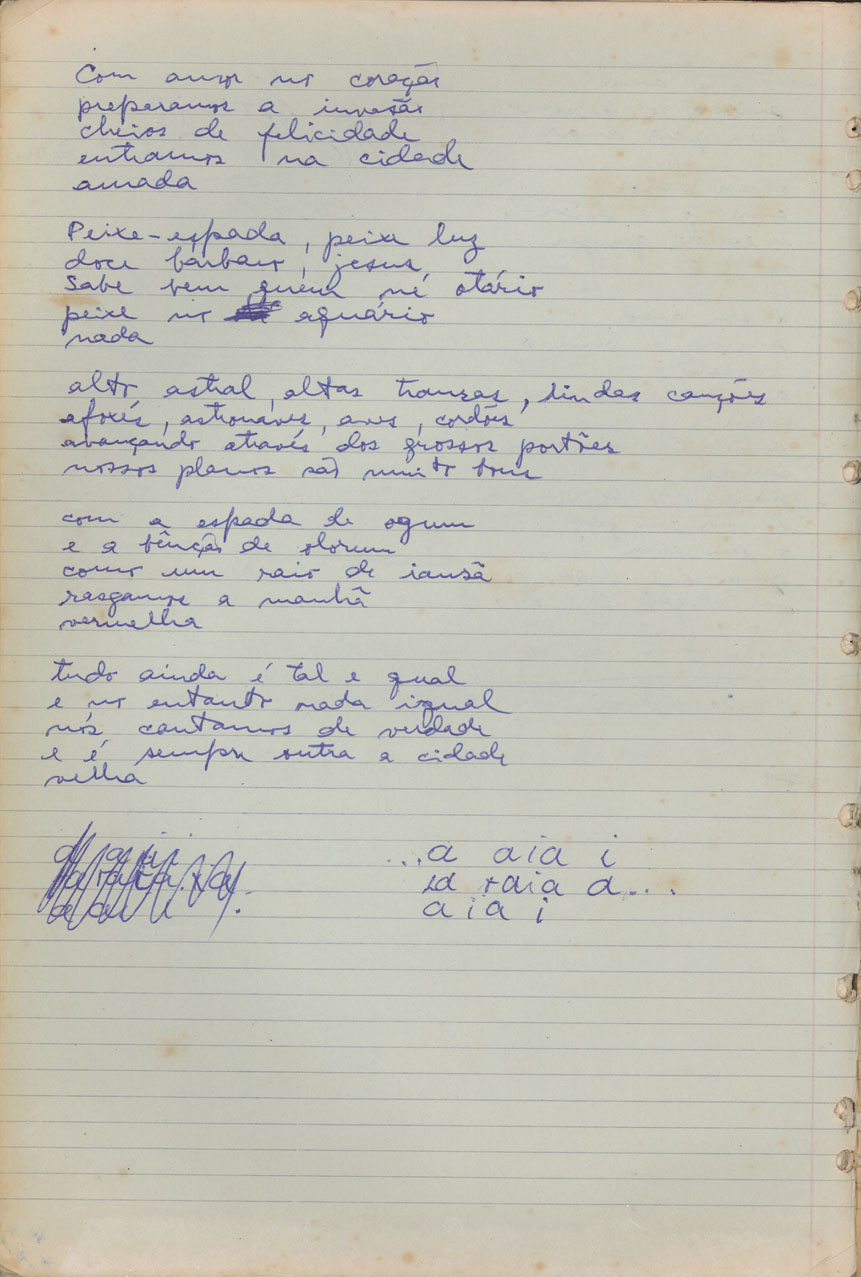 Com amor no coração
preparamos a invasão
cheios de felicidade
entramos na cidade
amada
Peixe-espada, peixe luz
doce bárbaro, jesus,
sabe bem quem né otário
peixe no aquário
nada
alto astral, altas transas, lindas canções
afoxés, astronaves, aves, cordões
avançando através dos grossos portões
nossos planos são muito bons
com a espada de ogum
e a bênção de olorum
como um raio de iansã
rasgamos a manhã
vermelha
tudo ainda é tal e qual
e no entanto nada igual
nós cantamos de verdade
e é sempre outra a cidade
velha
...a aia i
a aia a...
a i a i